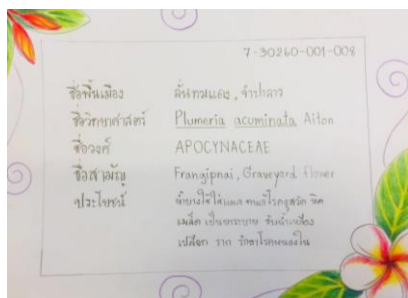 7-30260-001-008
ชื่อพื้นเมือง ลั่นทมแดง, จำปาลาว
ชื่อวิทยาศาสตร์ Plumeria acuminata Aiton
ชื่อวงศ์ APOCYNACEAE
ชื่อสามัญ Frangipnai, Graveyard flower
ประโยชน์ น้ำยางใช้ใส่แผล หิด
เมล็ด เป็นยาระบาย ขับน้ำเหลือง
เปลือก ราก รักษาโรคหนองใน